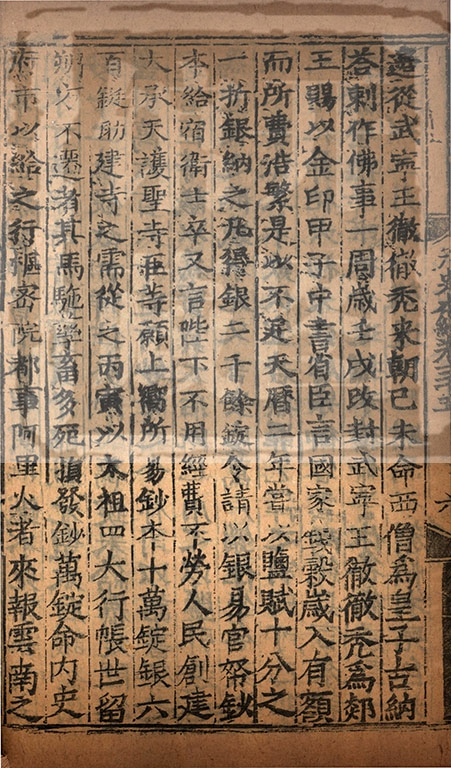 邊從武寧王徹徹禿來朝己未命西僧爲皇子古納
荅剌作佛事一周歲壬戌改封武寧王徹徹禿爲郯
王賜以金印甲子中書省臣言國家錢穀歲入有額
而所費浩繁是以不足天曆二年嘗以鹽賦十分之
一折銀納之凡得銀二千餘錠今請以銀易官帑鈔
本給宿衛士卒又言陛下不用經費不勞人民創建
大承天護聖寺臣等願上嚮所易鈔本十萬錠銀六
百錠助建寺之需從之丙寅以太祖四大行帳世留
朔方不遷者其馬駝孳畜多死損發鈔萬錠命内史
府市以給之行樞密院都事阿里火者來報雲南之